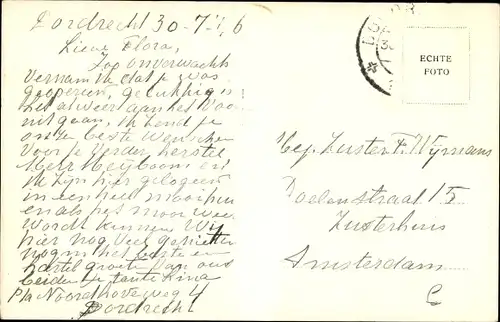 Dordrecht 30-7-'46
Lieve Flora,
Zop onverwachts
Vernam ik dat je was
geopereerd, gelukkig is
het alweer aan het Voor
uitgaan, Ik zend je
onze beste Wenschen
Voor je Verder herstel
Meer Heyboom en
Ik zijn hier gelogeerd
in een heel mooi huis
en als het mooi weer
Wordt kunnen Wij
hier nog Veel genieten
nogm het beste en
hartel groeten Van ons
beiden je tante Rina
P/a Noordhoveweg 4
Dordrecht
ECHTE
FOTO
Mej. Zuster F. Wijmans
Doelenstraat 15
Zusterhuis
Amsterdam
C